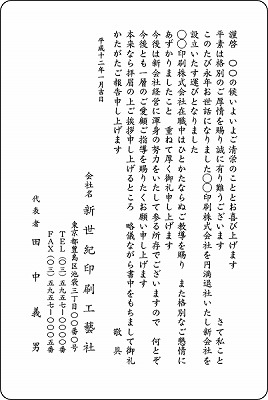 謹啓　〇〇の候いよいよご清栄のこととお喜び上げます
平素は格別のご厚情を賜り誠に有り難うございます　さて私こと
このたび永年お世話になりました〇〇印刷株式会社を円満退社いたし新会社を
設立いたす運びとなりました
〇〇印刷株式会社在職中はひとかたならぬご教導を賜り　また格別なご懇情に
あずかりましたこと　重ねて厚く御礼申し上げます
今後は新会社経営に渾身の努力をいたして参る所存でございますので　何とぞ
今後とも一層のご愛顧ご指導を賜りたくお願い申し上げます
本来なら拝眉の上ご挨拶申し上げるところ　略儀ながら書中をもちまして御礼
かたがたご報告申し上げます　敬具
平成十二年一月吉日
会社名　新世紀印刷工藝社
東京都豊島区池袋三丁目〇〇番〇号
TEL（〇三）五九五七―〇〇〇〇番
FAX（〇三）五九五七―〇〇〇五番
代表者　田中義男